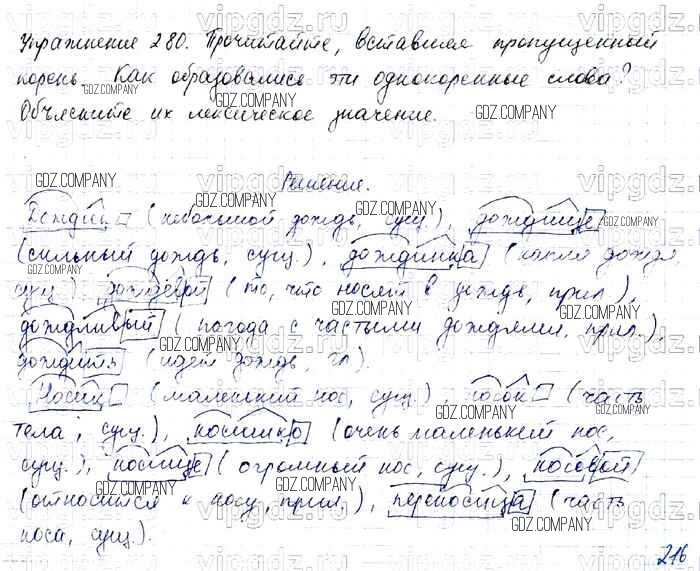 Упражнение 280. Прочитайте, вставляя пропущенный
корень. Как образовались эти однокоренные слова?
Объясните их лексическое значение.
Решение.
Дождик (небольшой дождь, сущ.), дождище
(сильный дождь, сущ.), дождинка (капля дождя,
сущ.), дождевой (то, что носят в дождь, прил.),
дождливый (погода с частыми дождями, прил.),
дождить (идет дождь, гл.).
Носик (маленький нос, сущ.), носок (часть
тела, сущ.), носишко (очень маленький нос,
сущ.), носище (огромный нос, сущ.), носовой
(относится к носу, прил.), переносица (часть
носа, сущ.).
216